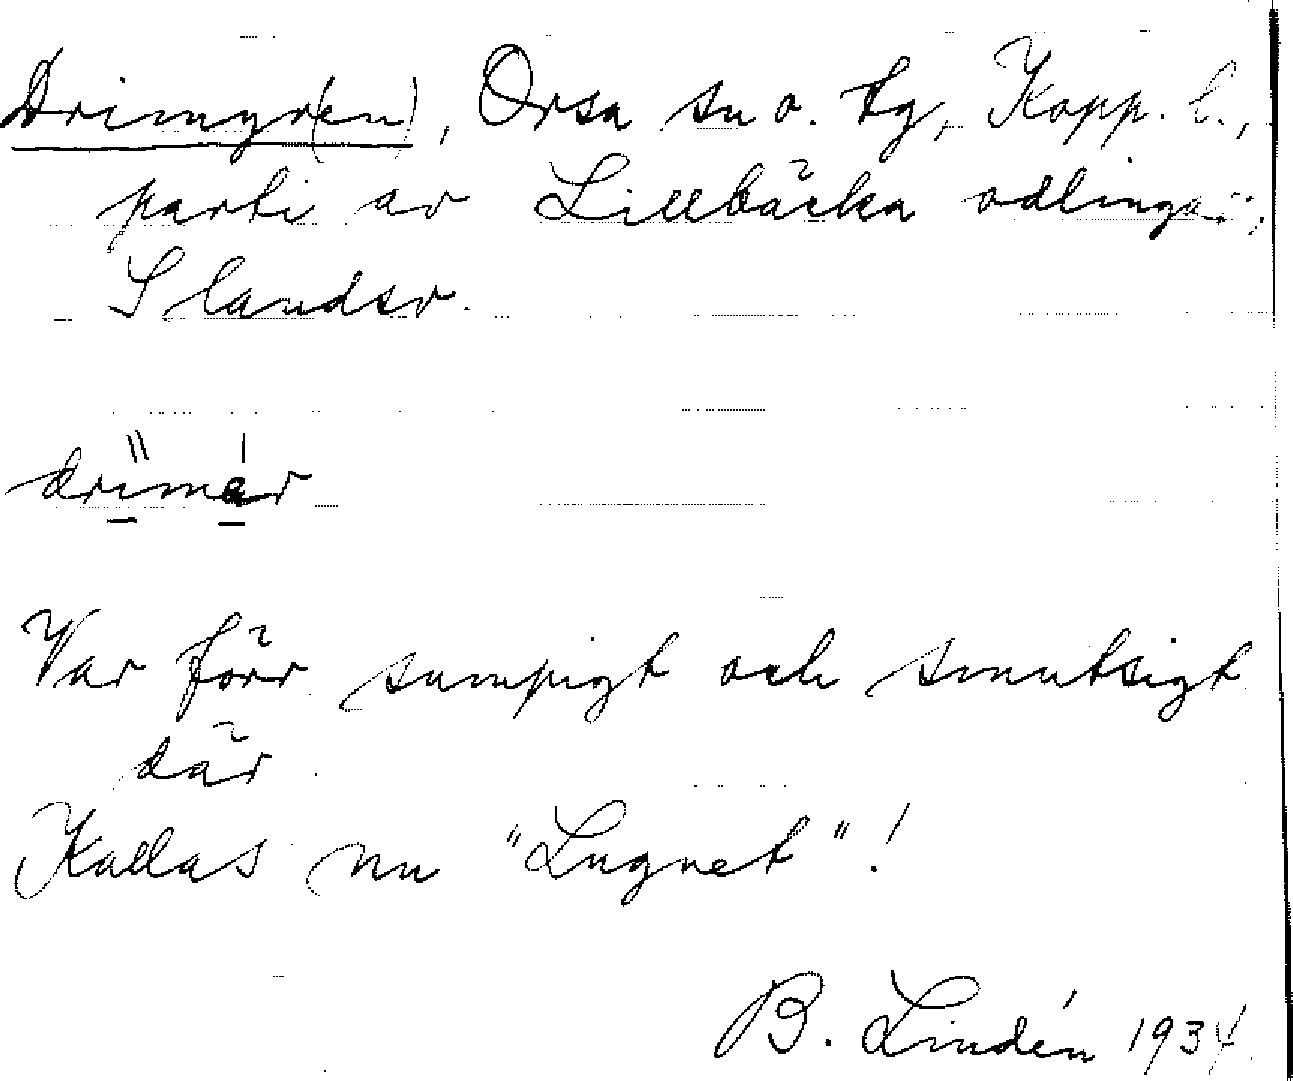 Drimyr(en), Orsa sn o. tg, Kopp. l.,
parti av Lillbäcka odlingar;
S landsv.
drimär
Var förr sumpigt och smutsigt
där
Kallas nu "Lugnet"!
B. Lindén 1934